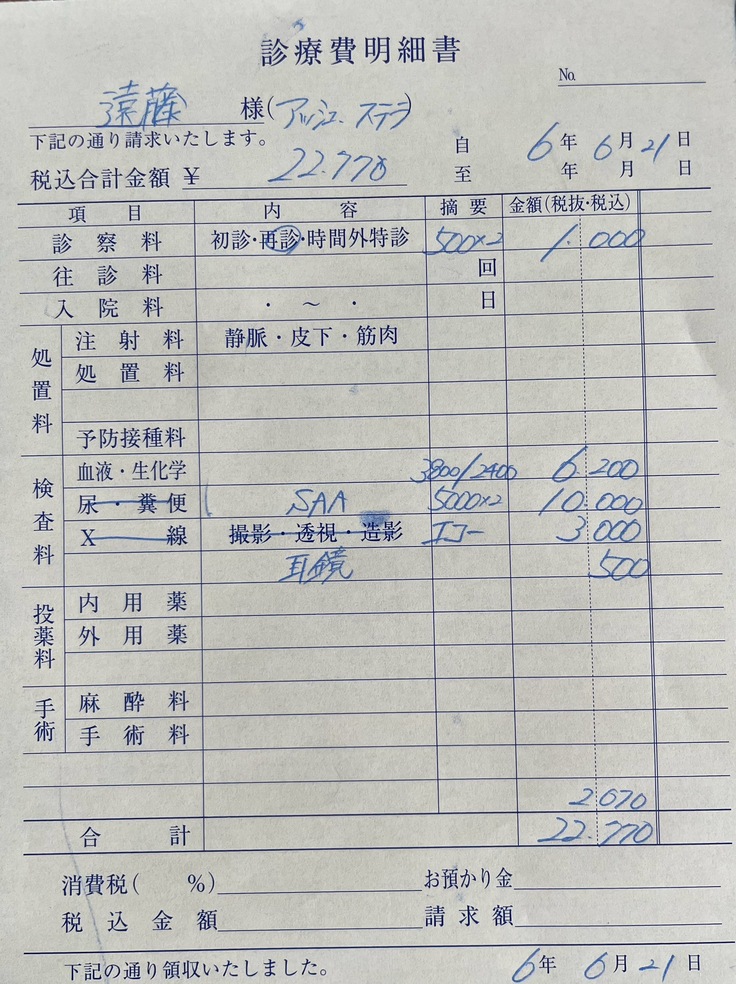 診療費明細書
No.
遠藤 様(アッシュ、ステラ)
下記の通り請求いたします。
自 6年 6月 21日
税込合計金額 ¥ 22.770
至 年 月 日
項目 内容 摘要 金額(税抜・税込)
診察料 初診・再診・時間外特診 500×2 1.000
往診料 回
入院料 ・ ~ ・ 日
処置料
注射料 静脈・皮下・筋肉
処置料
予防接種料
検査料
血液・生化学 3800/2400 6.200
尿・糞便 SAA 5000×2 10.000
X線 撮影・透視・造影 エコー 3.000
耳鏡 500
投薬料
内用薬
外用薬
手術
麻酔料
手術料
2.070
合計 22.770
消費税( %) お預かり金
税込金額 請求額
下記の通り領収いたしました。 6年 6月 21日